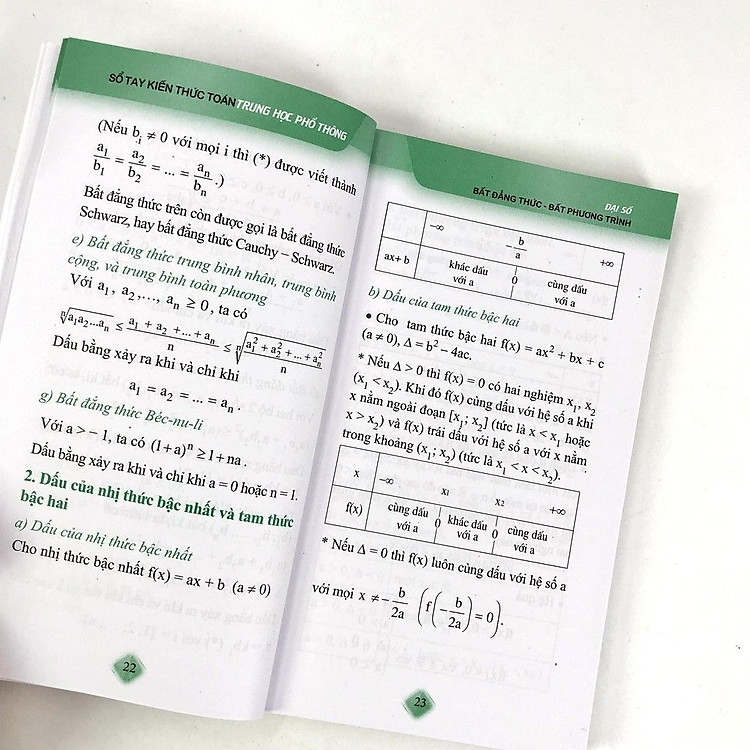 SỔ TAY KIẾN THỨC TOÁN TRUNG HỌC PHỔ THÔNG
(Nếu bᵢ ≠ 0 với mọi i thì (*) được viết thành
a₁/b₁ = a₂/b₂ = ... = aₙ/bₙ .)
Bất đẳng thức trên còn được gọi là bất đẳng thức
Schwarz, hay bất đẳng thức Cauchy – Schwarz.
e) Bất đẳng thức trung bình nhân, trung bình
cộng, và trung bình toàn phương
Với a₁, a₂,…, aₙ ≥ 0, ta có
ⁿ√(a₁a₂...aₙ) ≤ (a₁ + a₂ + ... + aₙ)/n ≤ ⁿ√((a₁² + a₂² + ... + aₙ²)/n)
Dấu bằng xảy ra khi và chỉ khi
a₁ = a₂ = ... = aₙ .
g) Bất đẳng thức Béc-nu-li
Với a > – 1, ta có (1+a)ⁿ ≥ 1 + na .
Dấu bằng xảy ra khi và chỉ khi a = 0 hoặc n = 1.
2. Dấu của nhị thức bậc nhất và tam thức
bậc hai
a) Dấu của nhị thức bậc nhất
Cho nhị thức bậc nhất f(x) = ax + b (a ≠ 0)
22
ĐẠI SỐ
BẤT ĐẲNG THỨC - BẤT PHƯƠNG TRÌNH
–∞ –b/a +∞
ax+ b khác dấu 0 cùng dấu
với a với a
b) Dấu của tam thức bậc hai
• Cho tam thức bậc hai f(x) = ax² + bx + c
(a ≠ 0), Δ = b² – 4ac.
* Nếu Δ > 0 thì f(x) = 0 có hai nghiệm x₁, x₂
(x₁ < x₂). Khi đó f(x) cùng dấu với hệ số a khi
x nằm ngoài đoạn [x₁; x₂] (tức là x < x₁ hoặc
x > x₂) và f(x) trái dấu với hệ số a với x nằm
trong khoảng (x₁; x₂) (tức là x₁ < x < x₂).
x –∞ x₁ x₂ +∞
f(x) cùng dấu 0 khác dấu 0 cùng dấu
với a với a với a
* Nếu Δ = 0 thì f(x) luôn cùng dấu với hệ số a
với mọi x ≠ –b/2a (f(–b/2a) = 0).
23